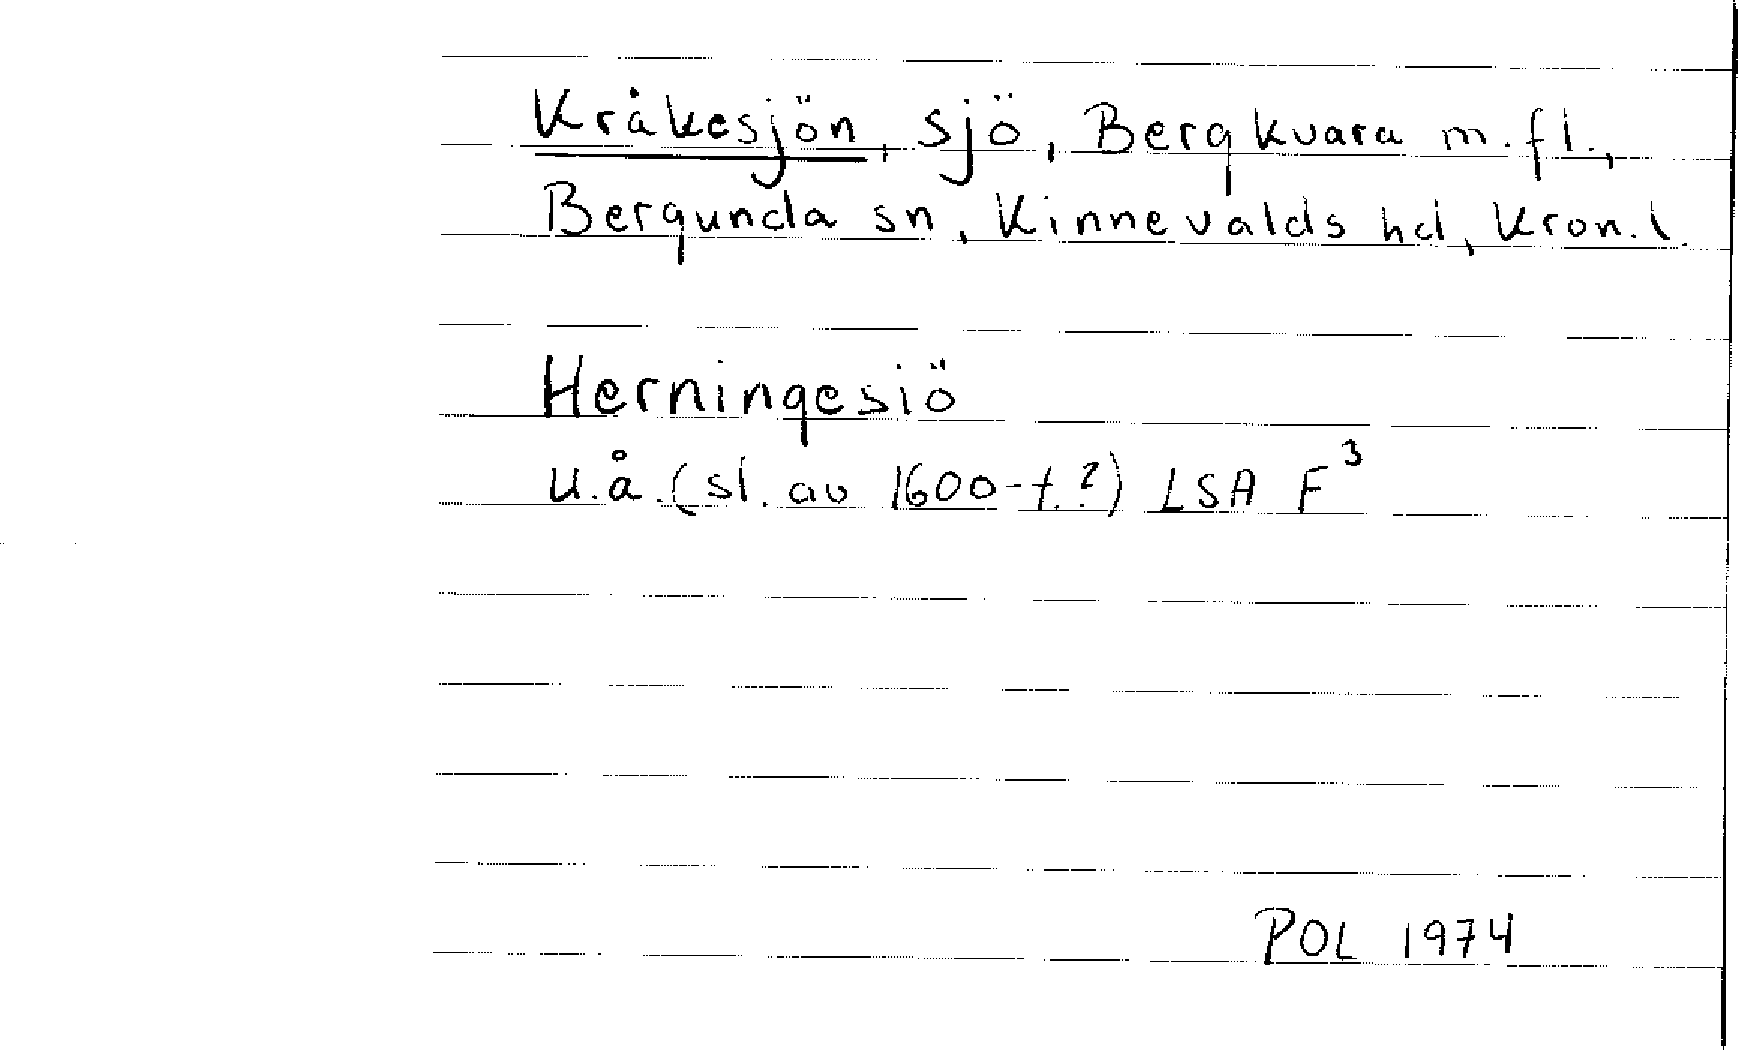 Kråkesjön, sjö, Bergkvara m.fl.,
Bergunda sn, Kinnevalds hd, Kron. l.
Herningesiö
u.å. (sl. av 1600-t.?) LSA F³
POL 1974